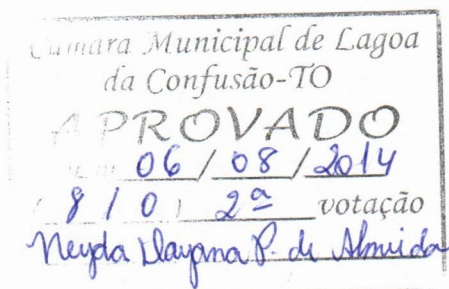 Câmara Municipal de Lagoa
da Confusão-TO
APROVADO
06 / 08 / 2014
( 8 / 0 ) 2ª votação
Neyda Dayana P. de Almeida